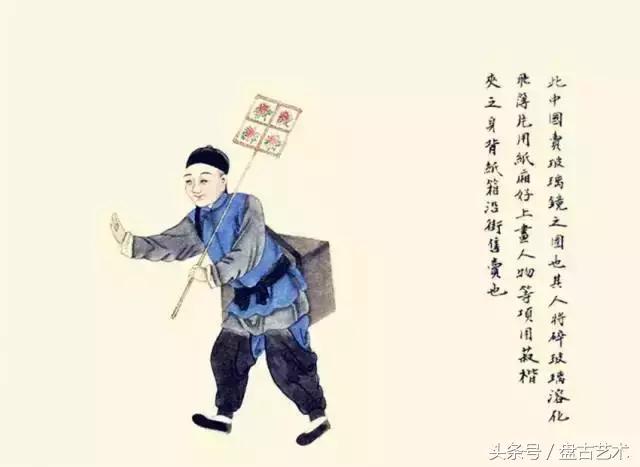 此中國賣玻璃鏡之圖也其人將碎玻璃溶化
飛薄片用紙廂好上畫人物等項用蔌楷
夾之身背紙箱沿街售賣也
头条号／盘古艺术